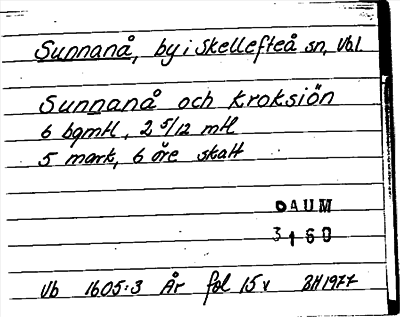 Sunnanå, by i Skellefteå sn, Vbl
Sunnanå och Kroksiön
6 bgmtl, 2 5/12 mtl
5 mark, 6 öre skatt
DAUM
3160
Vb 1605:3 År fol 15 v BH 1977